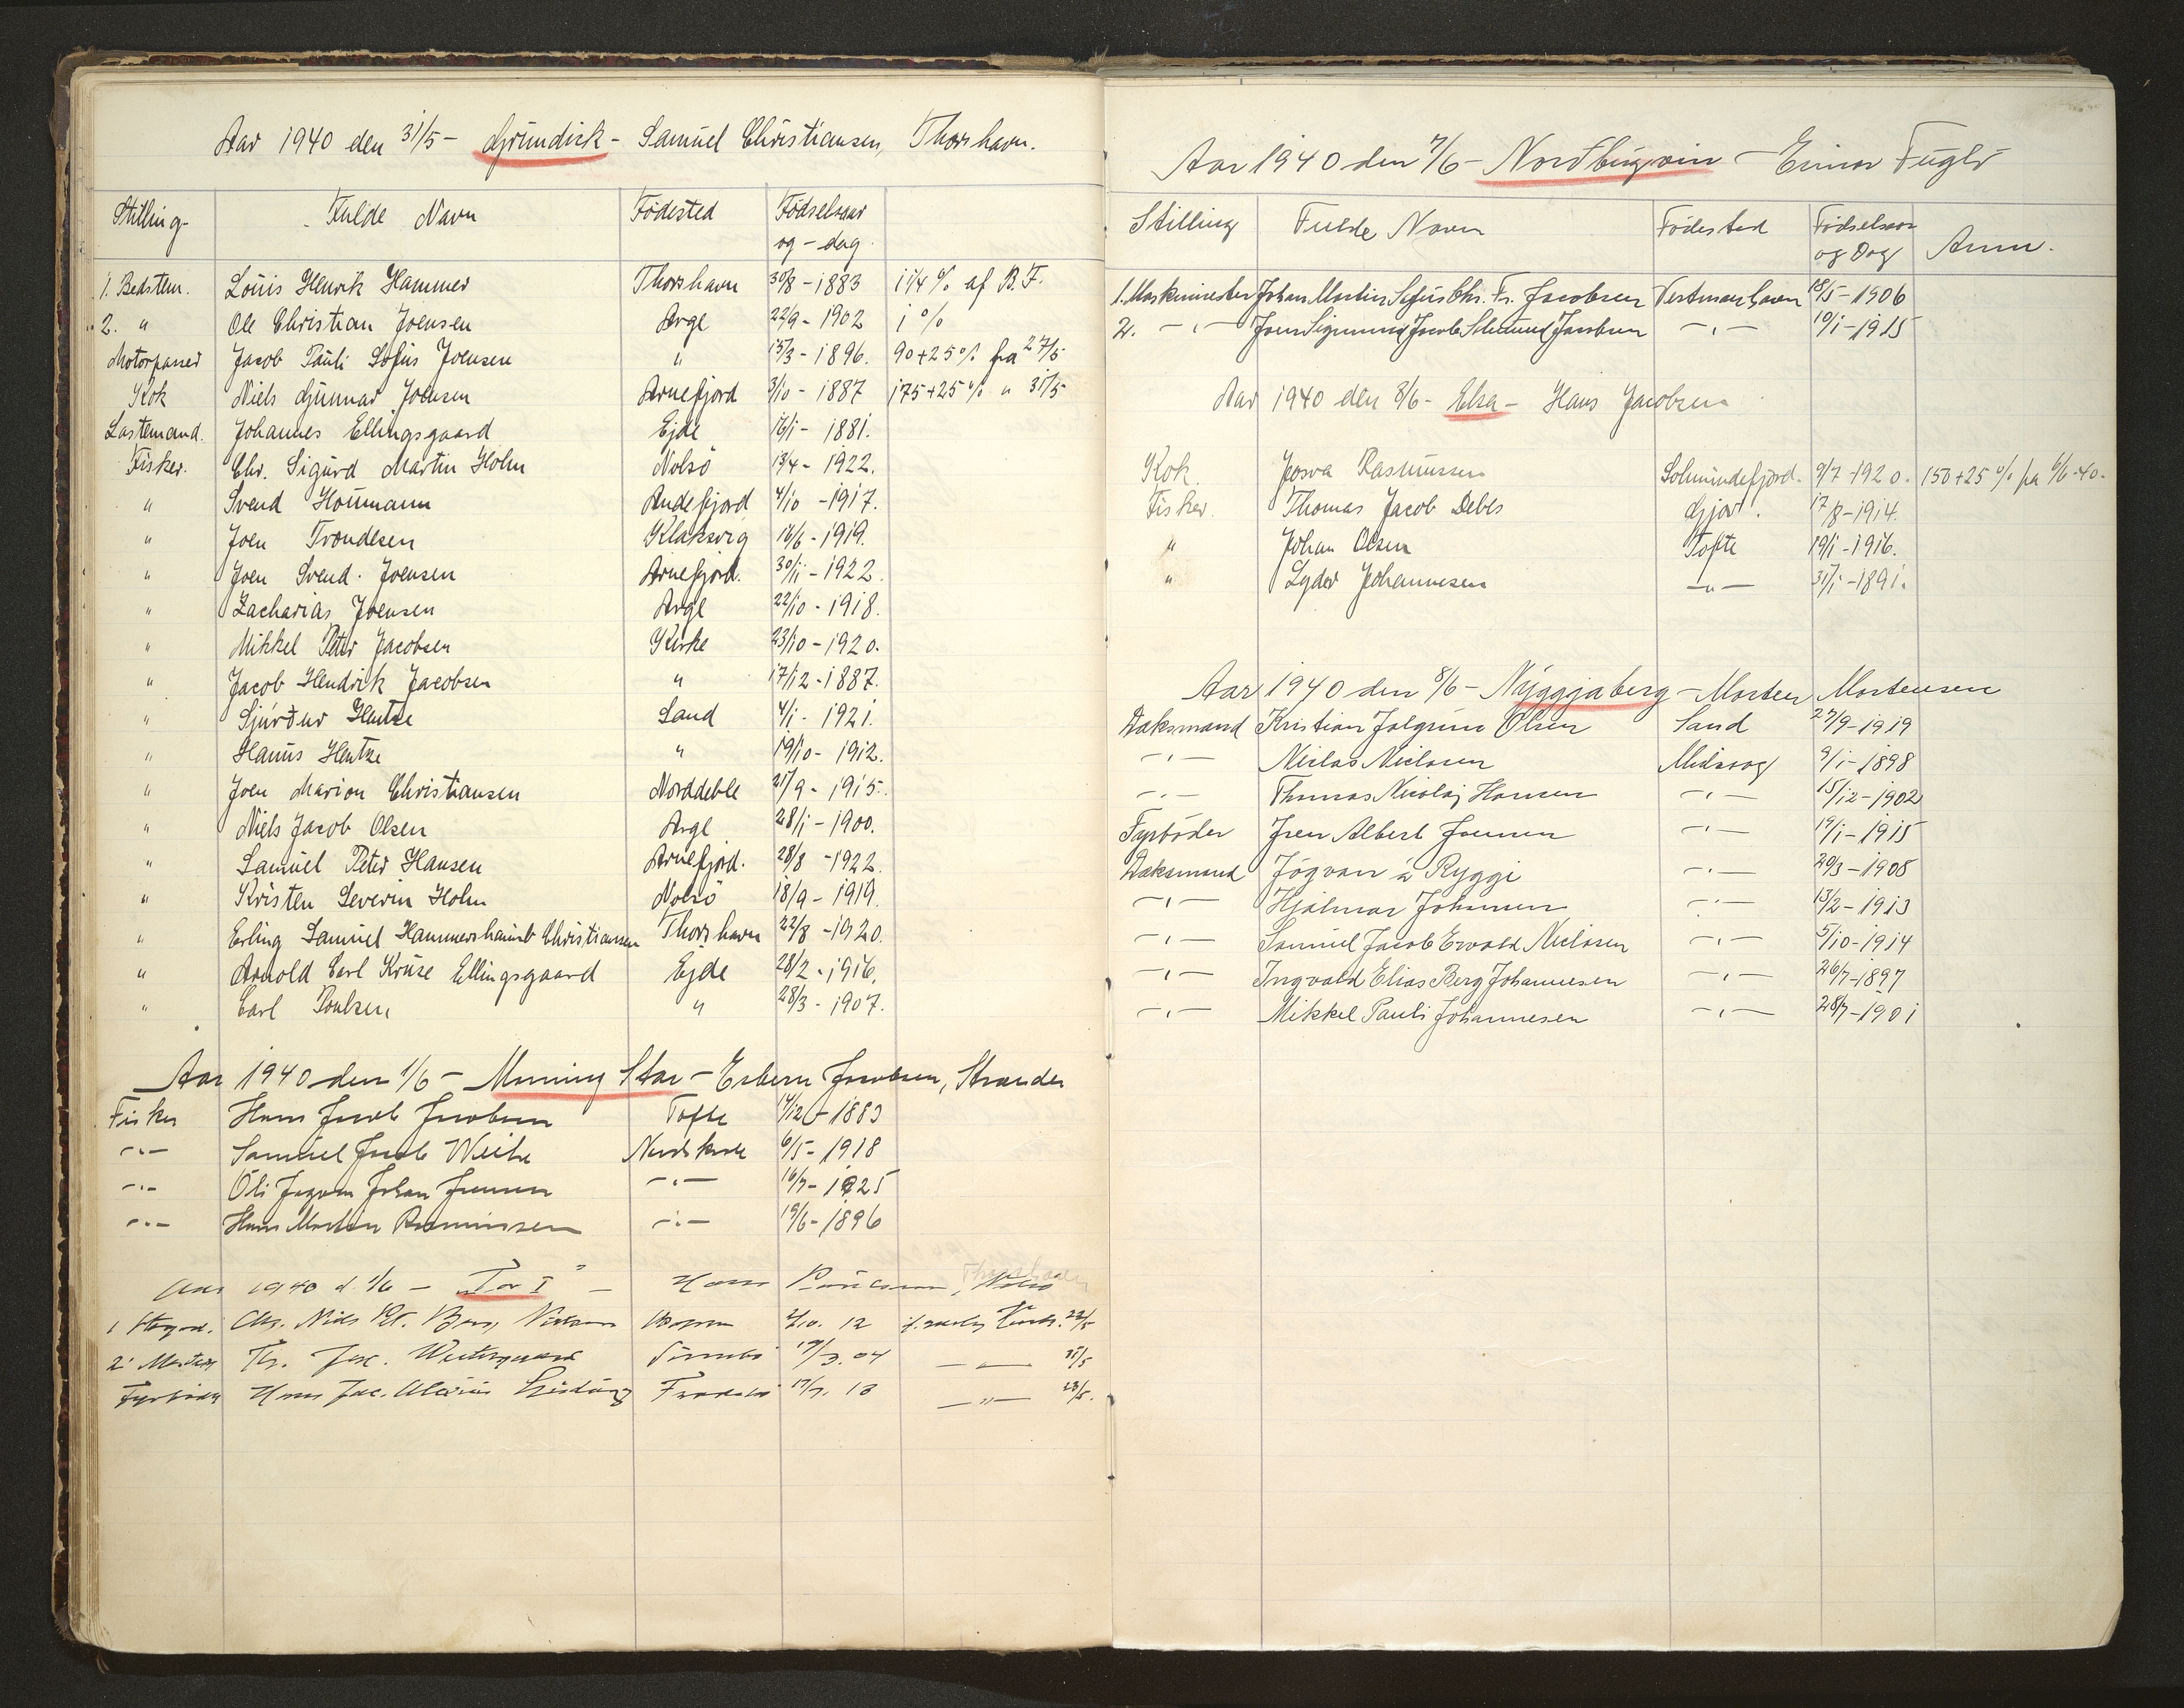 Aar 1940 den 31/5 - Grundick - Samuel Christiansen, Thorshavn.
Stilling Fulde Navn Födested Födselsaar
og - dag.
1. Bedstem. Louis Henrik Hammer Thorshavn 30/8 - 1883 1 1/4 % af B.F.
2. " Ole Christian Joensen Arge 22/9 - 1902 1 %
Motorpasser Jacob Pauli Sofus Joensen " 15/3 - 1896. 90+25% fra 27/5
Kok Niels Gunnar Joensen Arnefjord 3/10 - 1887 175+25% " 31/5
Lastemand. Johannes Ellingsgaard Ejde 16/1 - 1881.
Fisker. Chr. Sigurd Martin Holm Nolsö 13/4 - 1922.
" Svend Houmann Andefjord 4/10 - 1917.
" Joen Trondesen Klaksvig 16/6 - 1919.
" Joen Svend. Joensen Arnefjord. 30/11 - 1922.
" Zacharias Joensen Arge 22/10 - 1918.
" Mikkel Peter Jacobsen Kirke 23/10 - 1920.
" Jacob Hendrik Jacobsen " 17/12 - 1887.
" Sjúrður Hentze Sand 4/1 - 1921.
" Hanus Hentze " 19/10 - 1912.
" Joen Marion Christiansen Norddeble 21/9 - 1915.
" Niels Jacob Olsen Arge 28/1 - 1900.
" Samuel Peter Hansen Arnefjord. 28/8 - 1922.
" Kristen Severin Holm Nolsö 18/9 - 1919.
" Erling Samuel Hammershaimb Christiansen Thorshavn 22/8 - 1920.
" Arnold Carl Kruse Ellingsgaard Ejde 28/2 - 1916.
" Carl Poulsen " 28/3 - 1907.
Aar 1940 den 1/6 - Morning Star - Esbern Jacobsen, Strander
Fisker Hans Jacob Jacobsen Tofte 14/12 - 1883
-"- Samuel Jacob Weihe Nordskaale 6/5 - 1918
-"- Óli Jogvan Johan Joensen -"- 16/7 - 1925
-"- Hans Morten Rasmussen -"- 19/6 - 1896
Aar 1940 d. 1/6 - "Tor I" - Hans
1 Chr. Niels 12
2. Mester Jac. Westergaard 19/3. 04 - " -
Fyrböder Hans Jac. 17/7. 13 - " - 23/5.
Aar 1940 den 7/6 - Nordbugvin - Einar Fuglö
Stilling Fulde Navn Födested Födselsaar
og Dag Anm.
1. Maskinmester Johan Martin Sofus Chr. Fr. Jacobsen Vestmanhavn 18/5 - 1906
2. -"- Joen Sigmund Jacob Jacobsen -"- 10/1 - 1915
Aar 1940 den 8/6 - Elsa - Hans Jacobsen
Kok. Josva Rasmussen Solmundefjord. 9/7 - 1920. 150+25% fra 6/6-40.
Fisker. Thomas Jacob Debes Gjov. 17/8 - 1914.
" Johan Olsen Tofte 19/1 - 1916.
" Lyder Johannesen -"- 31/1 - 1891.
Aar 1940 den 8/6 - Nýggjaberg - Morten Mortensen
Dæksmand Kristian Jolgrim Olsen Sand 27/9 - 1919
-"- Niclas Niclasen Midvaag 9/1 - 1898
-"- Thomas Nicolaj Hansen -"- 15/12 - 1902
Fyrböder Jens Albert Joensen -"- 19/1 - 1915
Dæksmand Jógvan á Ryggi -"- 20/3 - 1908
-"- Hjalmar Johannesen -"- 13/2 - 1913
-"- Samuel Jacob Ewald Niclasen -"- 5/10 - 1914
-"- Ingvald Elias Berg Johannesen -"- 26/7 - 1897
-"- Mikkel Pauli Johannesen -"- 28/7 - 1901